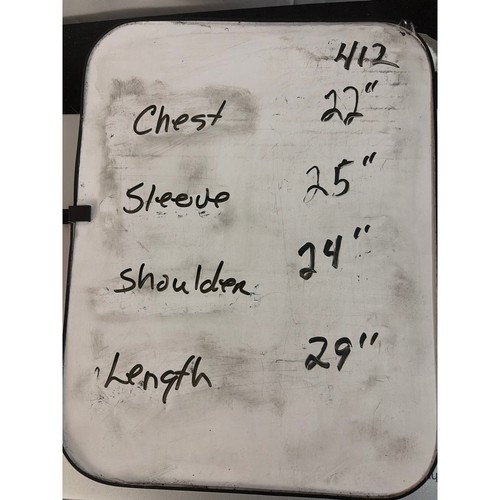 412
Chest 22"
Sleeve 25"
Shoulder 24"
Length 29"